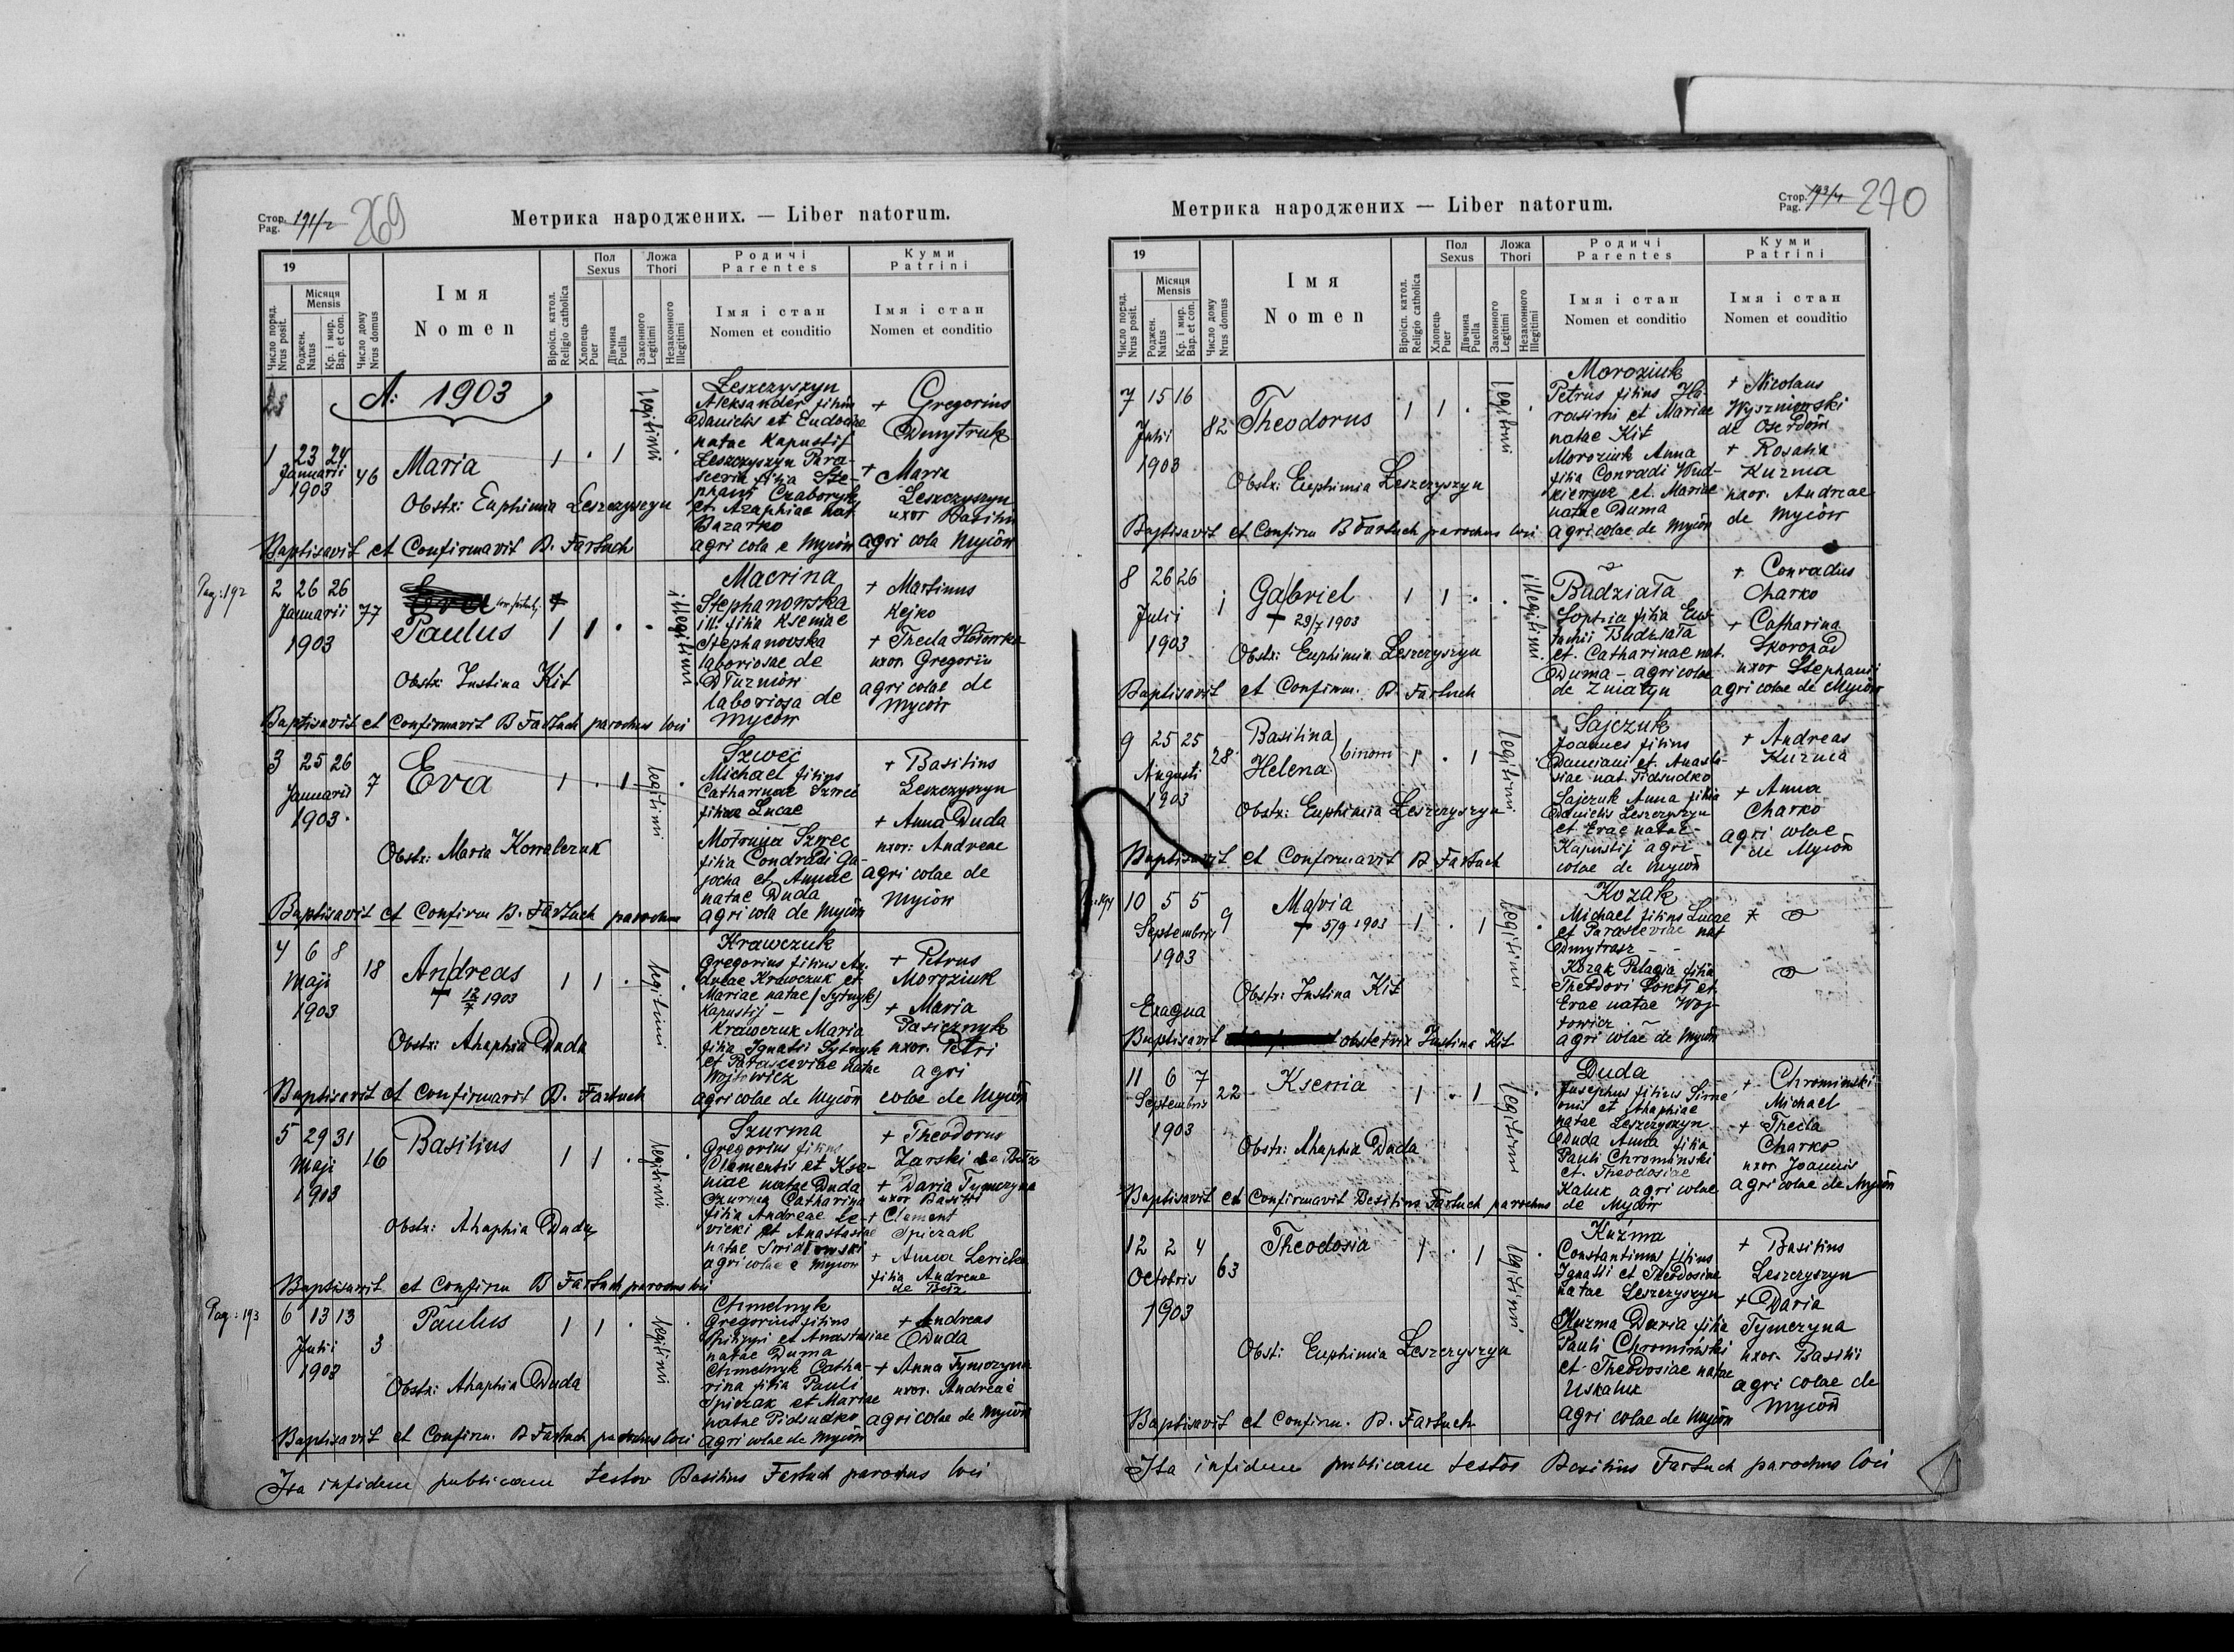 Стор.
Pag. 191/2 269
Метрика народжених. — Liber natorum.
19
Число поряд.
Nrus posit.
Місяця
Mensis
Роджен.
Natus
Кр. і мир.
Bap. et con.
Число дому
Nrus domus
Імя
Nomen
Віроісп. катол.
Religio catholica
Пол
Sexus
Хлопець
Puer
Дівчина
Puella
Ложа
Thori
Законного
Legitimi
Незаконного
Illegitimi
Родичі
Parentes
Імя і стан
Nomen et conditio
Куми
Patrini
Імя і стан
Nomen et conditio
A: 1903
1 23 24
Januarii
1903
46
Maria
1 . 1
legitimi
Obstx: Euphimia Leszczyszyn
Leszczyszyn
Aleksander filius
Danielis et Eudociae
natae Kapustij
Leszczyszyn Para-
scevia filia Ste-
phani Czaboryk
et Agaphiae nat
Bazarko
agricola e Myców
+ Gregorius
Dmytruk
+ Maria
Leszczyszyn
uxor Basilii
agricola Myców
Baptisavit et Confirmavit B. Fartuch
Pag: 192
2 26 26
Januarii
1903
77
Paulus
1 1 . .
illegitimi
Obstx: Justina Kit
Macrina
Stephanowska
ill. filia Kseniae
Stephanovska
laboriosae de
Dłużniów
laboriosa de
Myców
+ Martinus
Kejko
+ Thecla Hołowka
uxor. Gregorii
agricolae de
Myców
Baptisavit et Confirmavit B Fartuch parochus loci
3 25 26
Januarii
1903.
7
Eva
1 . 1
legitimi
Obstx: Maria Kowalczuk
Szweć
Michael filius
Catharinae Szweć
filiae Lucae
Motruna Szwec
filia Condradi Ga-
jocha et Annae
natae Duda
agricola de Myców
+ Basilius
Leszczyszyn
+ Anna Duda
uxor: Andreae
agricolae de
Myców
Baptisavit et Confirm B. Fartuch parochus
4 6 8
Maji
1903
18
Andreas
+ 12/7 1903
1 1 .
legitimi
Obstx: Ahaphia Duda
Krawczuk
Gregorius filius An-
dreae Krawczuk et
Mariae natae (Sytnyk)
Kapustij -
Krawczuk Maria
filia Ignatii Sytnyk
et Parasceviae natae
Wojtowicz
agricolae de Myców
+ Petrus
Moroziuk
+ Maria
Pasicznyk
uxor. Petri
agri
colae de Myców
Baptisavit et Confirmavit B. Fartuch
5 29 31
Maji
1903
16
Basilius
1 1 .
legitimi
Obstx: Ahaphia Duda
Szurma
Gregorius filius
Clementis et Kse-
niae natae Duda
Szurma Catharina
filia Andreae Le-
vicki et Anastasiae
natae
agricolae e Myców
+ Theodorus
Żarski de Bełz
+ Daria Tymczyna
uxor Basilii
+ Clement
Spiczak
+ Anna Levicka
filia Andreae
de Bełz
Baptisavit et Confirm B Fartuch parochus loci
Pag: 193
6 13 13
Julii
1903
3
Paulus
1 1 .
legitimi
Obstx: Ahaphia Duda
Chmelnyk
Gregorius filius
Philippi et Anastasiae
natae Duma
Chmelnyk Catha-
rina filia Pauli
Spiczak et Mariae
natae Pidsudko
agricolae de Myców
+ Andreas
Duda
+ Anna Tymczyna
uxor. Andreae
agricolae de Myców
Baptisavit et Confirm. B Fartuch parochus loci
Ita in fidem publicam testor Basilius Fartuch parochus loci
Стор.
Pag. 193/4 270
Метрика народжених — Liber natorum.
19
Число поряд.
Nrus posit.
Місяця
Mensis
Роджен.
Natus
Кр. і мир.
Bap. et con.
Число дому
Nrus domus
Імя
Nomen
Віроісп. катол.
Religio catholica
Пол
Sexus
Хлопець
Puer
Дівчина
Puella
Ложа
Thori
Законного
Legitimi
Незаконного
Illegitimi
Родичі
Parentes
Імя і стан
Nomen et conditio
Куми
Patrini
Імя і стан
Nomen et conditio
7 15 16
Julii
1903
82
Theodorus
1 1 .
legitimi
Obstx: Euphimia Leszczyszyn
Moroziuk
Petrus filius Ha-
rasimi et Mariae
natae Kit
Moroziuk Anna
filia Conradi Wud-
kiewycz et Mariae
natae Duma
agricolae de Myców
+ Nicolaus
Wyszniowski
de Oserdów
+ Rosalia
Kuzma
uxor. Andreae
de Myców
Baptisavit et Confirm B Fartuch parochus loci
8 26 26
Julii
1903
1
Gabriel
+ 29/7 1903
1 1 . .
illegitimi
Obstx: Euphimia Leszczyszyn
Badziała
Sophia filia Eus-
tachii Budziała
et. Catharinae nat.
Duma - agricolae
de Zniatyn
+ Conradus
Charko
+ Catharina
Skoropad
uxor Stephani
agricolae de Myców
Baptisavit et Confirm. B. Fartuch
9 25 25
Augusti
1903
28
Basilina
Helena
binom
1 . 1
legitimi
Obstx: Euphimia Leszczyszyn
Sajczuk
Joannes filius
Damiani et. Anasta-
siae nat. Pidsudko
Sajczuk Anna filia
Danielis Leszczyszyn
et Evae natae -
Kapustij agri
colae de Myców
+ Andreas
Kuzma
+ Anna
Charko
agricolae
de Myców
Baptisavit et Confirmavit B Fartuch
10 5 5
Septembris
1903
9
Maria
+ 5/9 1903
1 . 1
legitimi
Obstx: Justina Kit
Exaqua
Kozak
Michael filius Lucae
et Parasceviae nat
Dmytrasz - -
Kozak Pelagia filia
Theodori Sokoł et
Evae natae Woj-
towicz
agricolae de Myców
Baptisavit obstetrix Justina Kit
11 6 7
Septembris
1903
22
Ksenia
1 . 1
legitimi
Obstx: Ahaphia Duda
Duda
Josephus filius Sime
onis et Ahaphiae
natae Leszczyszyn
Duda Anna filia
Pauli Chrominski
et. Theodosiae
Kaluk agricolae
de Myców
+ Chrominski
Michael
+ Thecla
Charko
uxor Joannis
agricolae de Myców
Baptisavit et Confirmavit Basilius Fartuch parochus
12 2 4
Octobris
1903
63
Theodosia
1 . 1
legitimi
Obst: Euphimia Leszczyszyn
Kuźma
Constantinus filius
Ignatii et Theodosiae
natae Leszczyszyn
Kuzma Daria filia
Pauli Chromiński
et Theodosiae natae
Uskaluk
agricolae de Myców
+ Basilius
Leszczyszyn
+ Daria
Tymczyna
uxor. Basilii
agricolae de
Myców
Baptisavit et Confirm. B. Fartuch
Ita in fidem publicam testor Basilius Fartuch parochus loci